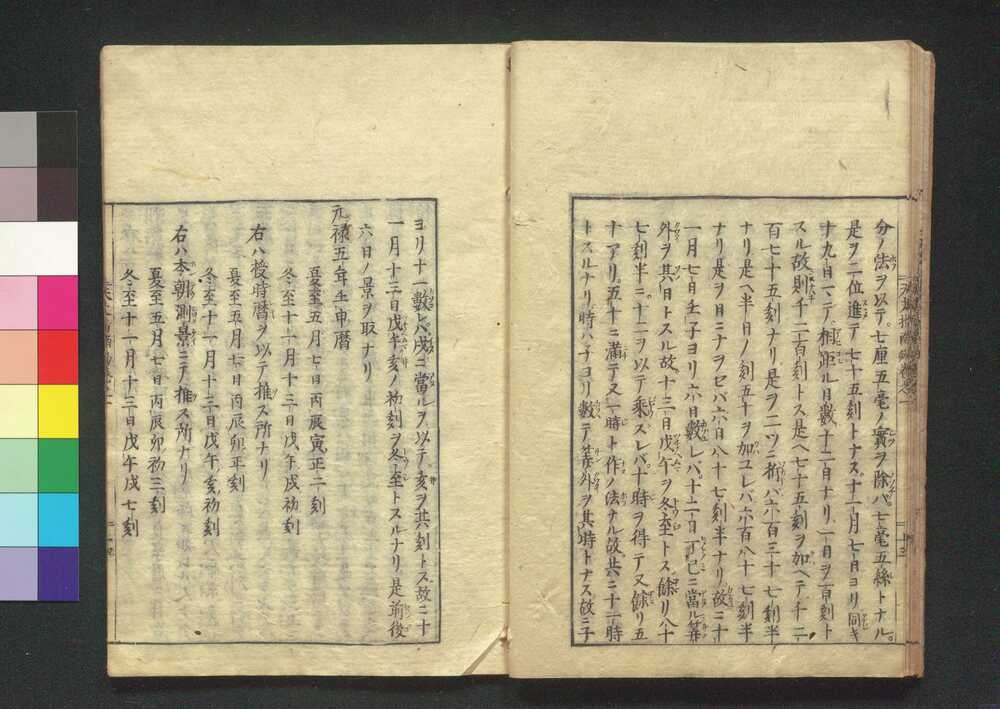 分ノ法ヲ以テ。七厘五毫ノ實ヲ除バ。七毫五絲トナル。
是ヲ二位進テ七十五刻トナス。十一月七日ヨリ同キ
十九日マデ相距ル日數十二日ナリ一日ヲ一百刻ト
スル故則千二百刻トス是ヘ七十五刻ヲ加ヘテ千二
百七十五刻ナリ是ヲ二ツニ折バ六百三十七刻半
ナリ是ヘ半日ノ刻五十ヲ加ユレバ六百八十七刻半
ナリ是ヲ日ニナヲセバ六日八十七刻半ナリ故ニ十
一月七日壬子ヨリ六日數レバ。十二日丁巳ニ當ル筭
外ヲ其日トスル故十三日戊午ヲ冬至トス餘リ八十
七刻半ニ十二ヲ以テ乘スレバ。十時ヲ得テ又餘リ五
十アリ。五十ニ滿テ又一時ト作ノ法ナル故共ニ十一時
トスルナリ時ハ子ヨリ數テ筭外ヲ其時トナス故ニ子
ヨリ十一數レバ戌ニ當ルヲ以テ亥ヲ其刻トス故ニ十
一月十三日戊午亥ノ初刻ヲ冬至トスルナリ是前後
六日ノ景ヲ取ナリ
元祿五年壬申暦
夏至五月七日丙辰寅正二刻
冬至十一月十三日戊午戌初刻
右ハ授時暦ヲ以テ推ス所ナリ
夏至五月七日丙辰卯正刻
冬至十一月十三日戊午亥初刻
右ハ本朝測景ニテ推ス所ナリ
夏至五月七日丙辰卯初三刻
冬至十一月十三日戊午戌七刻